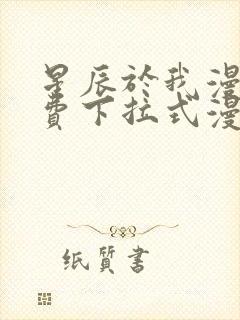 星辰於我漫
费下拉式漫
纸质書